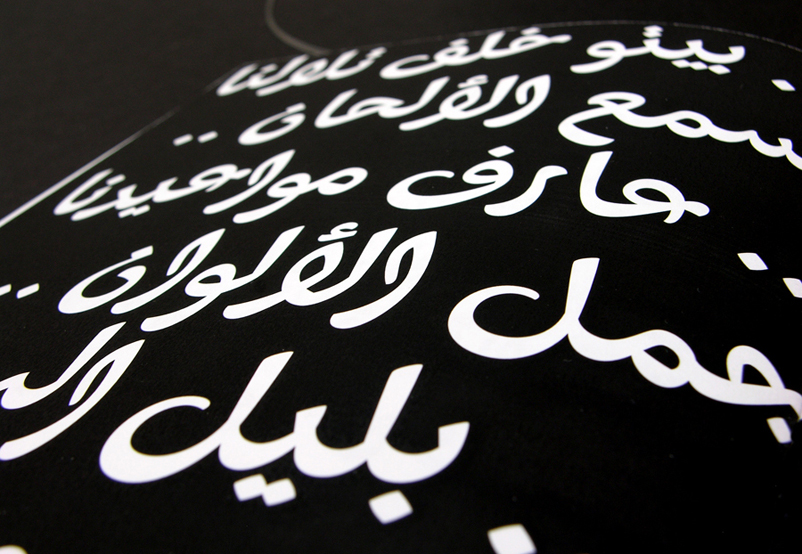 بيئو خلف تلالنا
الألحان ..
عارف مواعيدنا
تجمل الألوان ..
بليل